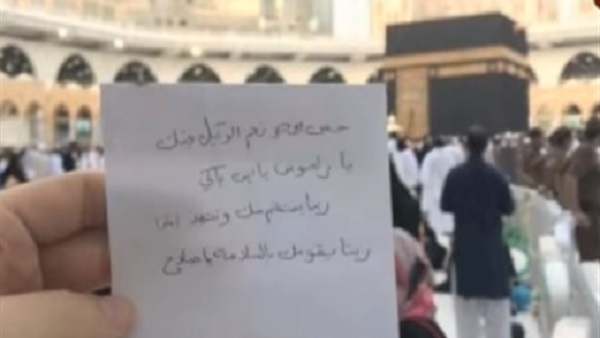 حسبى الله ونعم الوكيل فيك
يا راموس يا ابن
ربنا ينتقم منك
ربنا يقومك بالسلامة يا صلاح